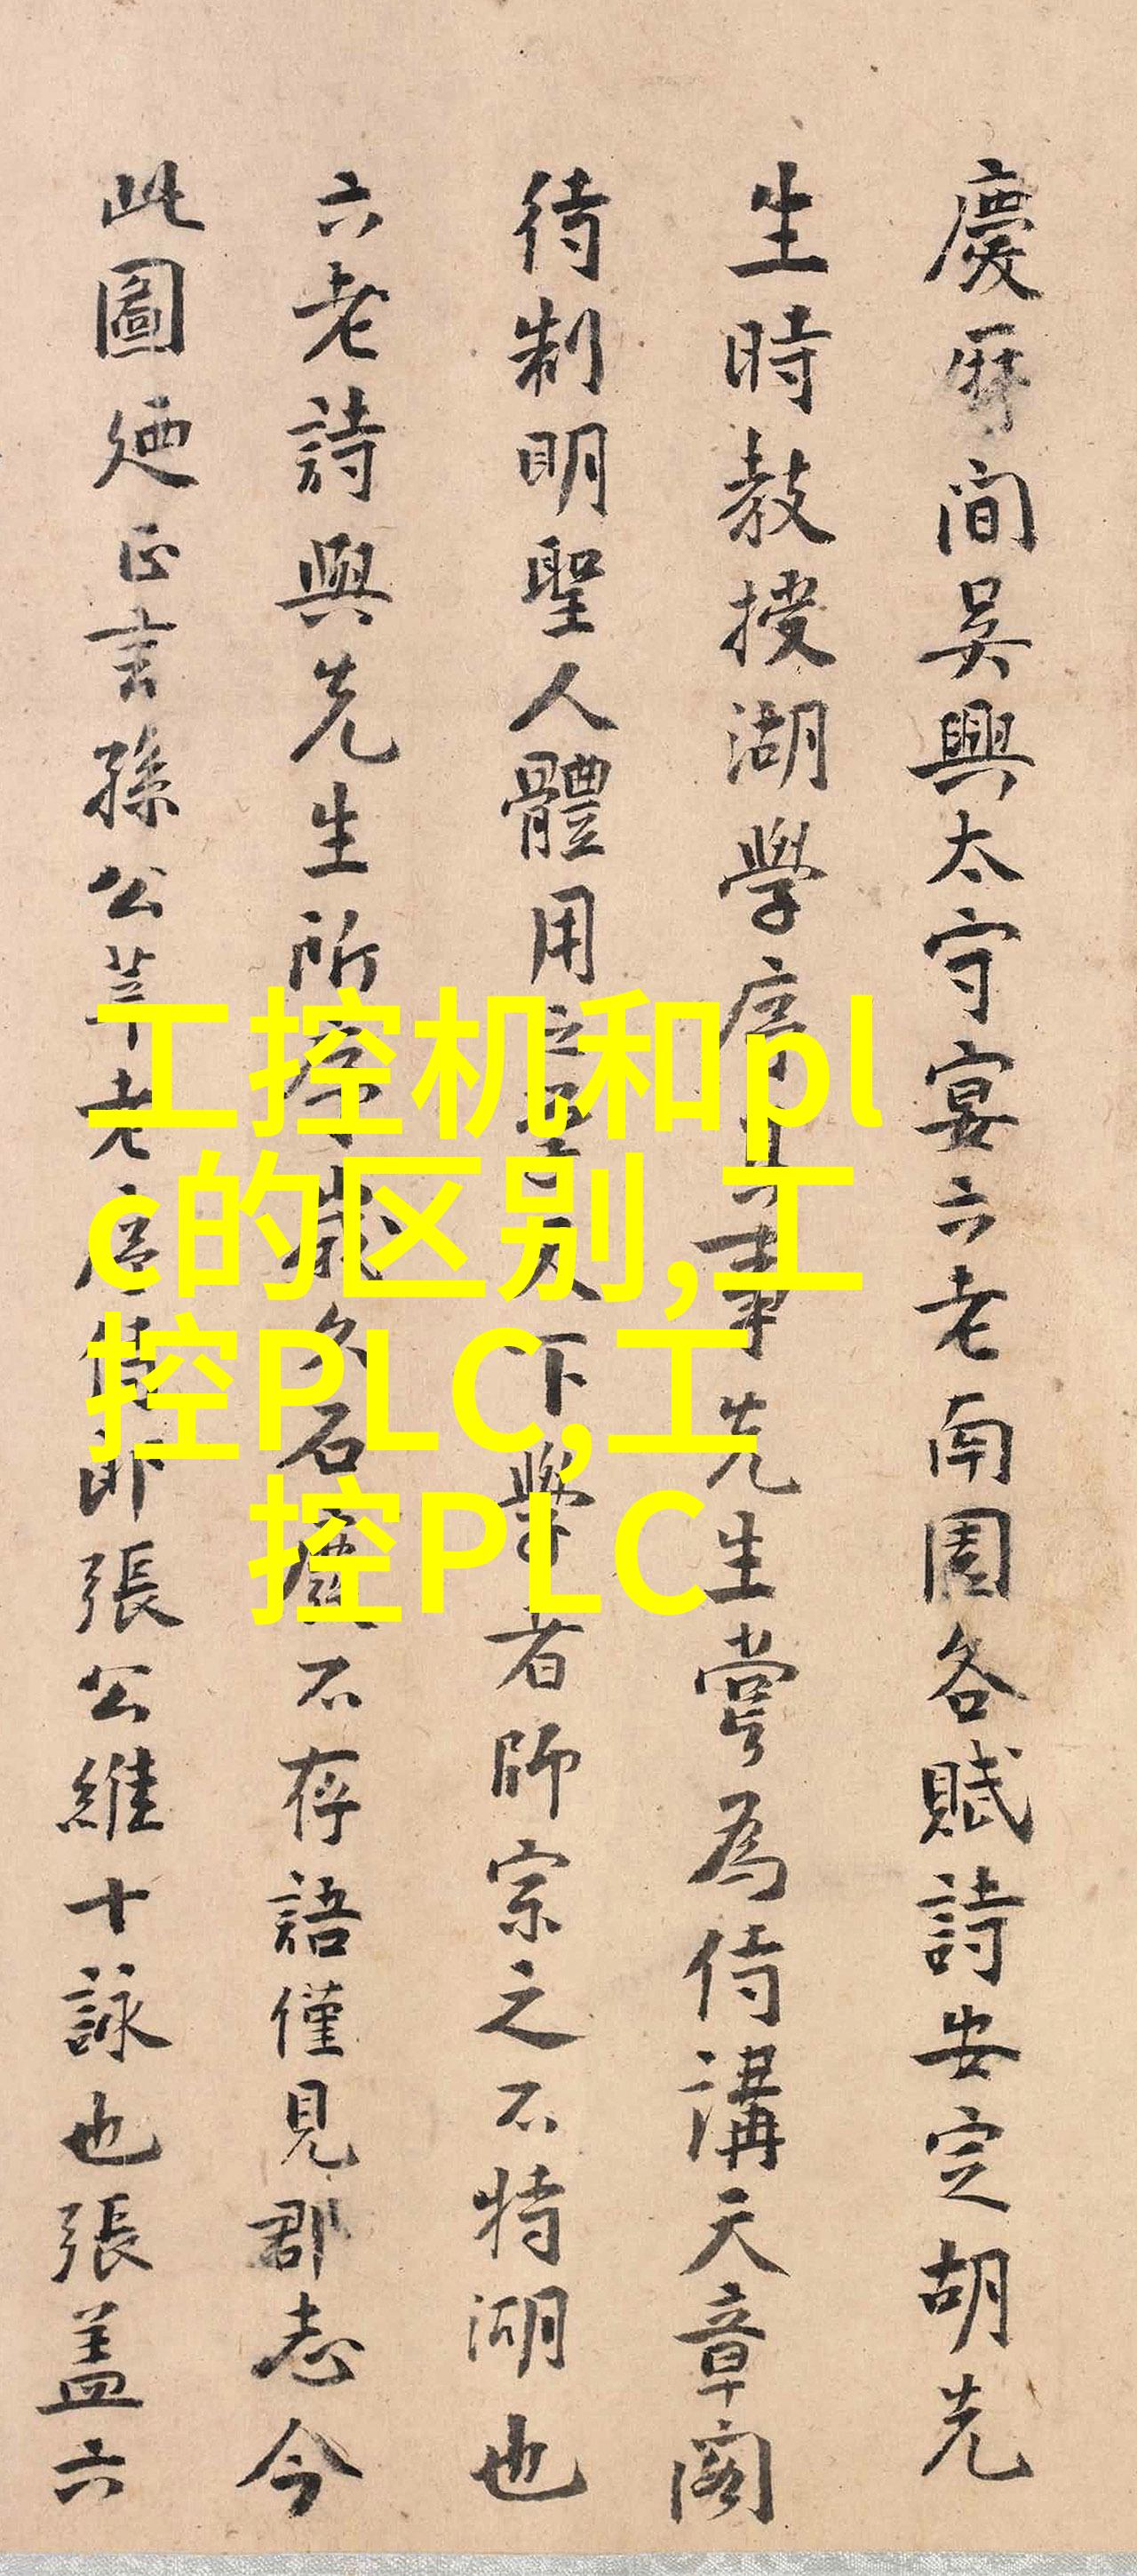 慶曆間吳興太守宴六老南園各賦詩安定胡先
生時教授湖學序其事先生嘗為侍講天章閣
待制明聖人體用之學天下學者師宗之不特湖也
六老詩與先生所序歲久石廢不存語僅見郡志今
此圖廼正言孫公莘老居侍郎張公維十詠也張蓋六
工控机和pl
c的区别,工
控PLC,工
控PLC